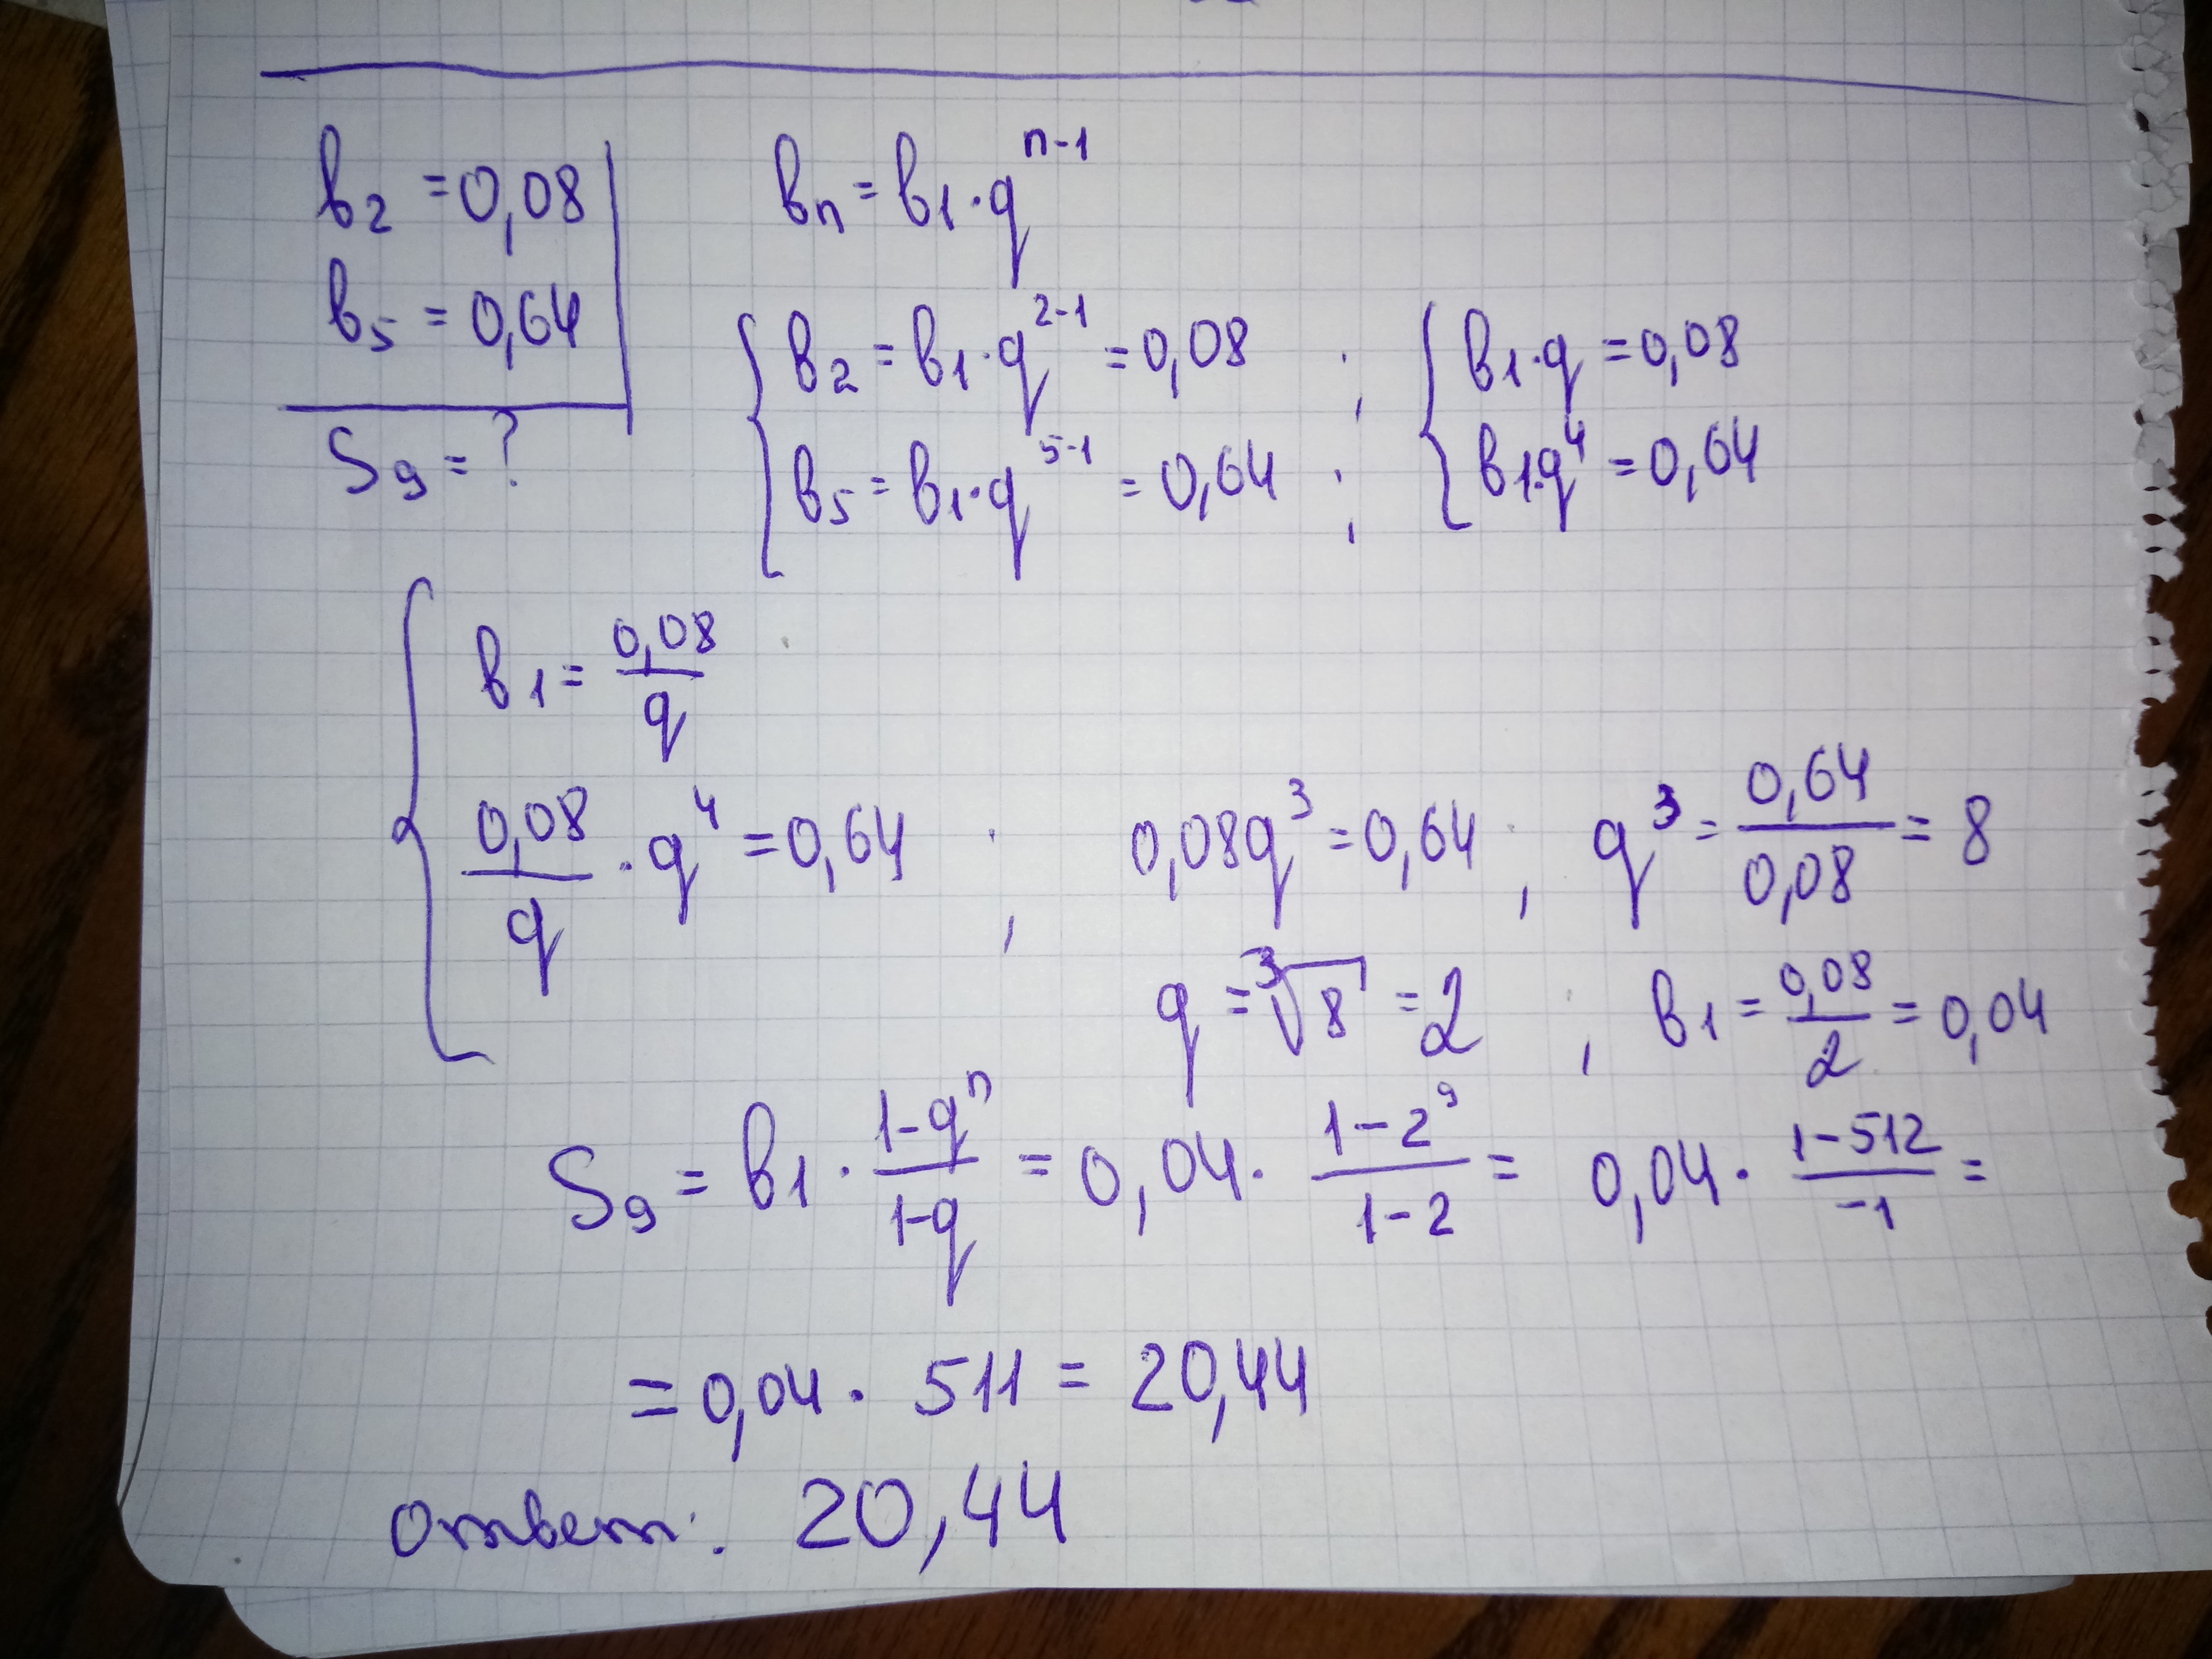 в₂ = 0,08
в₅ = 0,64
S₉ = ?
вₙ = в₁·qⁿ⁻¹
{ в₂ = в₁·q²⁻¹ = 0,08 ; { в₁·q = 0,08
в₅ = в₁·q⁵⁻¹ = 0,64 ; в₁·q⁴ = 0,64
{ в₁ = 0,08/q
0,08/q · q⁴ = 0,64 ; 0,08q³ = 0,64 ; q³ = 0,64/0,08 = 8
q = ³√8 = 2 ; в₁ = 0,08/2 = 0,04
S₉ = в₁ · (1-qⁿ)/(1-q) = 0,04 · (1-2⁹)/(1-2) = 0,04 · (1-512)/-1 =
= 0,04 · 511 = 20,44
ответ: 20,44